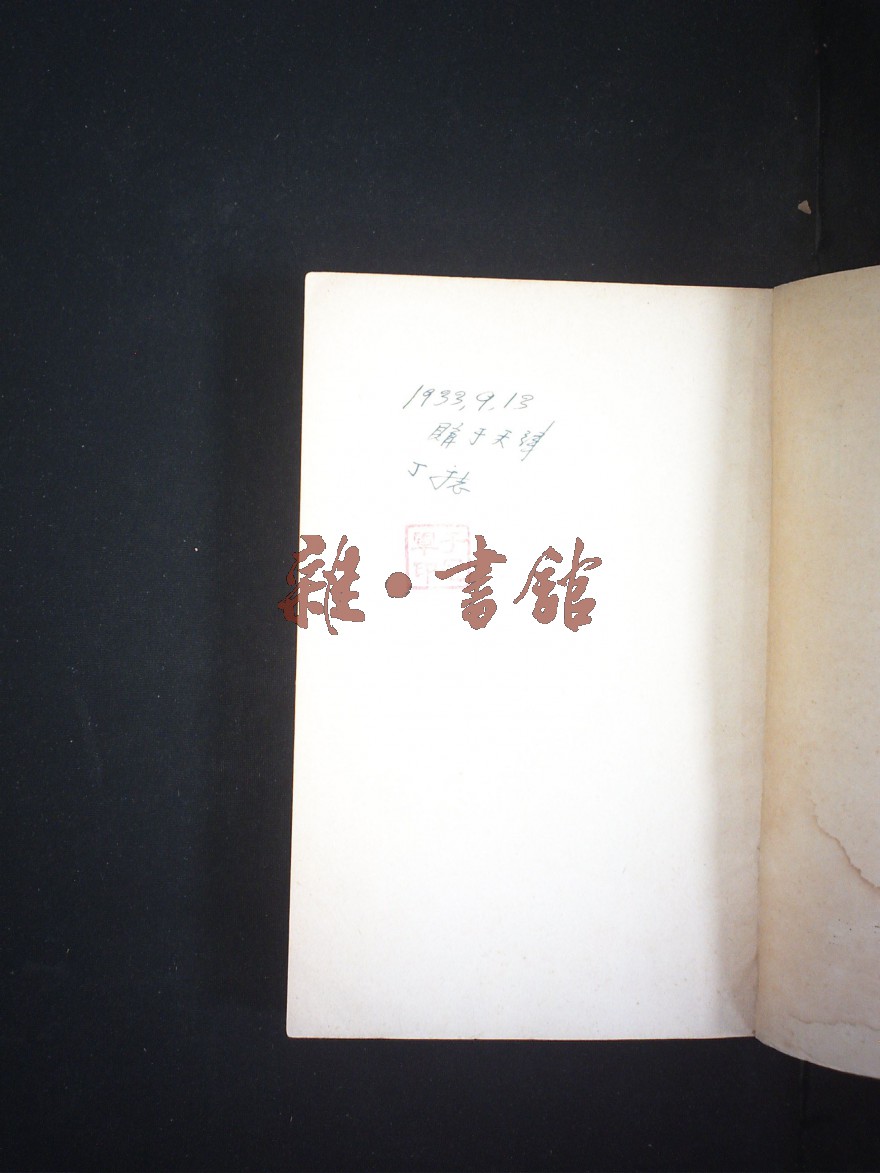 1933.9.13
購于天津
丁
雜·書館